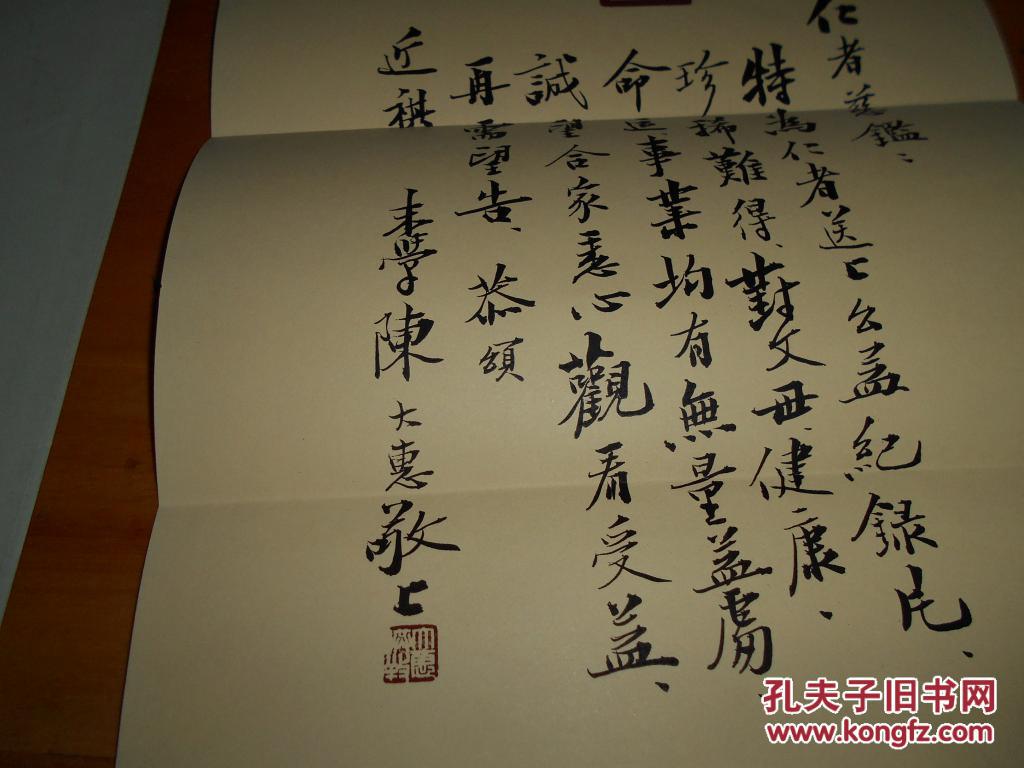 仁者慈鑑：
特為仁者送上公益紀録片、
珍稀難得、對父母、健康、
命運事業均有無量益處、
誠望合家悉心觀看受益、
再需望告、恭頌
近祺
末學陳大惠敬上
孔夫子旧书网
www.kongfz.com